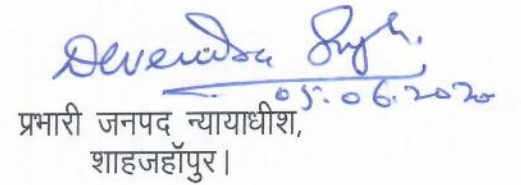 Devendra Singh.
05.06.2020
प्रभारी जनपद न्यायाधीश,
शाहजहॉपुर।